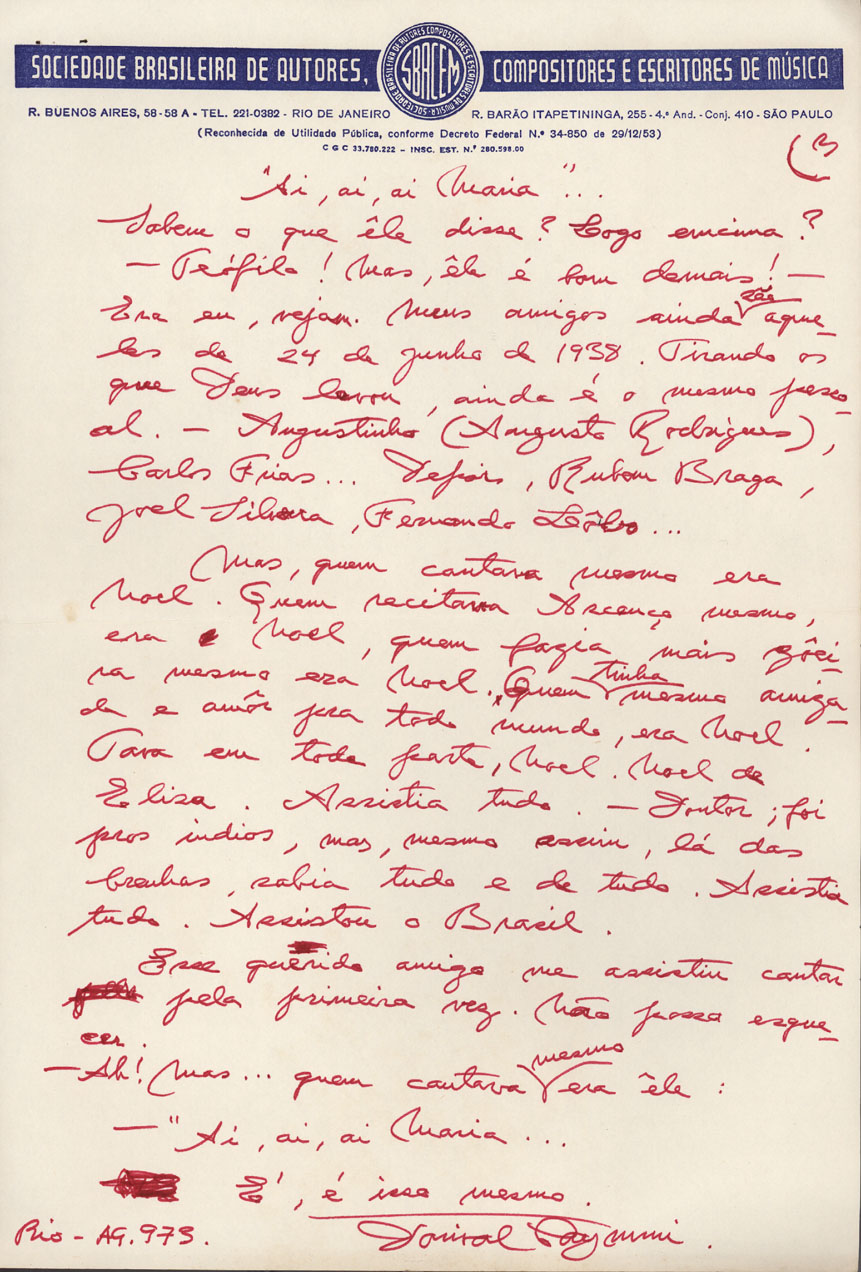 SOCIEDADE BRASILEIRA DE AUTORES, COMPOSITORES E ESCRITORES DE MÚSICA
SBACEM
R. BUENOS AIRES, 58-58 A - TEL. 221-0382 - RIO DE JANEIRO R. BARÃO ITAPETININGA, 255 - 4.ª And. - Conj. 410 - SÃO PAULO
(Reconhecida de Utilidade Pública, conforme Decreto Federal N.º 34-850 de 29/12/53)
C G C 33.780.222 - INSC. EST. N.º 280.598.00
"Ai, ai, ai Maria"...
Sabem o que êle disse? Logo emcima?
— Teófilo! Mas, êle é bom demais! —
Era eu, vejam. Meus amigos ainda são aque-
les de 24 de junho de 1938. Tirando os
que Deus levou, ainda é o mesmo pesso-
al. — Augustinho (Augusto Rodrigues),
Carlos Frias... Depois, Rubem Braga,
Joel Silveira, Fernando Lôbo...
Mas, quem cantava mesmo era
Noel. Quem recitava Ascenço mesmo,
era Noel, quem fazia mais zôei-
ra mesmo era Noel. Quem tinha mesmo amiza-
de e amôr pra todo mundo, era Noel.
Tava em toda parte, Noel. Noel de
Elisa. Assistia tudo. — Doutor, foi
pros indios, mas, mesmo assim, lá das
brenhas, sabia tudo e de tudo. Assistia
tudo. Assistou o Brasil.
Esse querido amigo me assistiu cantar
pela primeira vez. Não posso esque-
cer.
— Ah! Mas... quem cantava mesmo era êle:
— "Ai, ai, ai Maria...
É, é isso mesmo.
Rio - AG. 973. Dorival Caymmi.